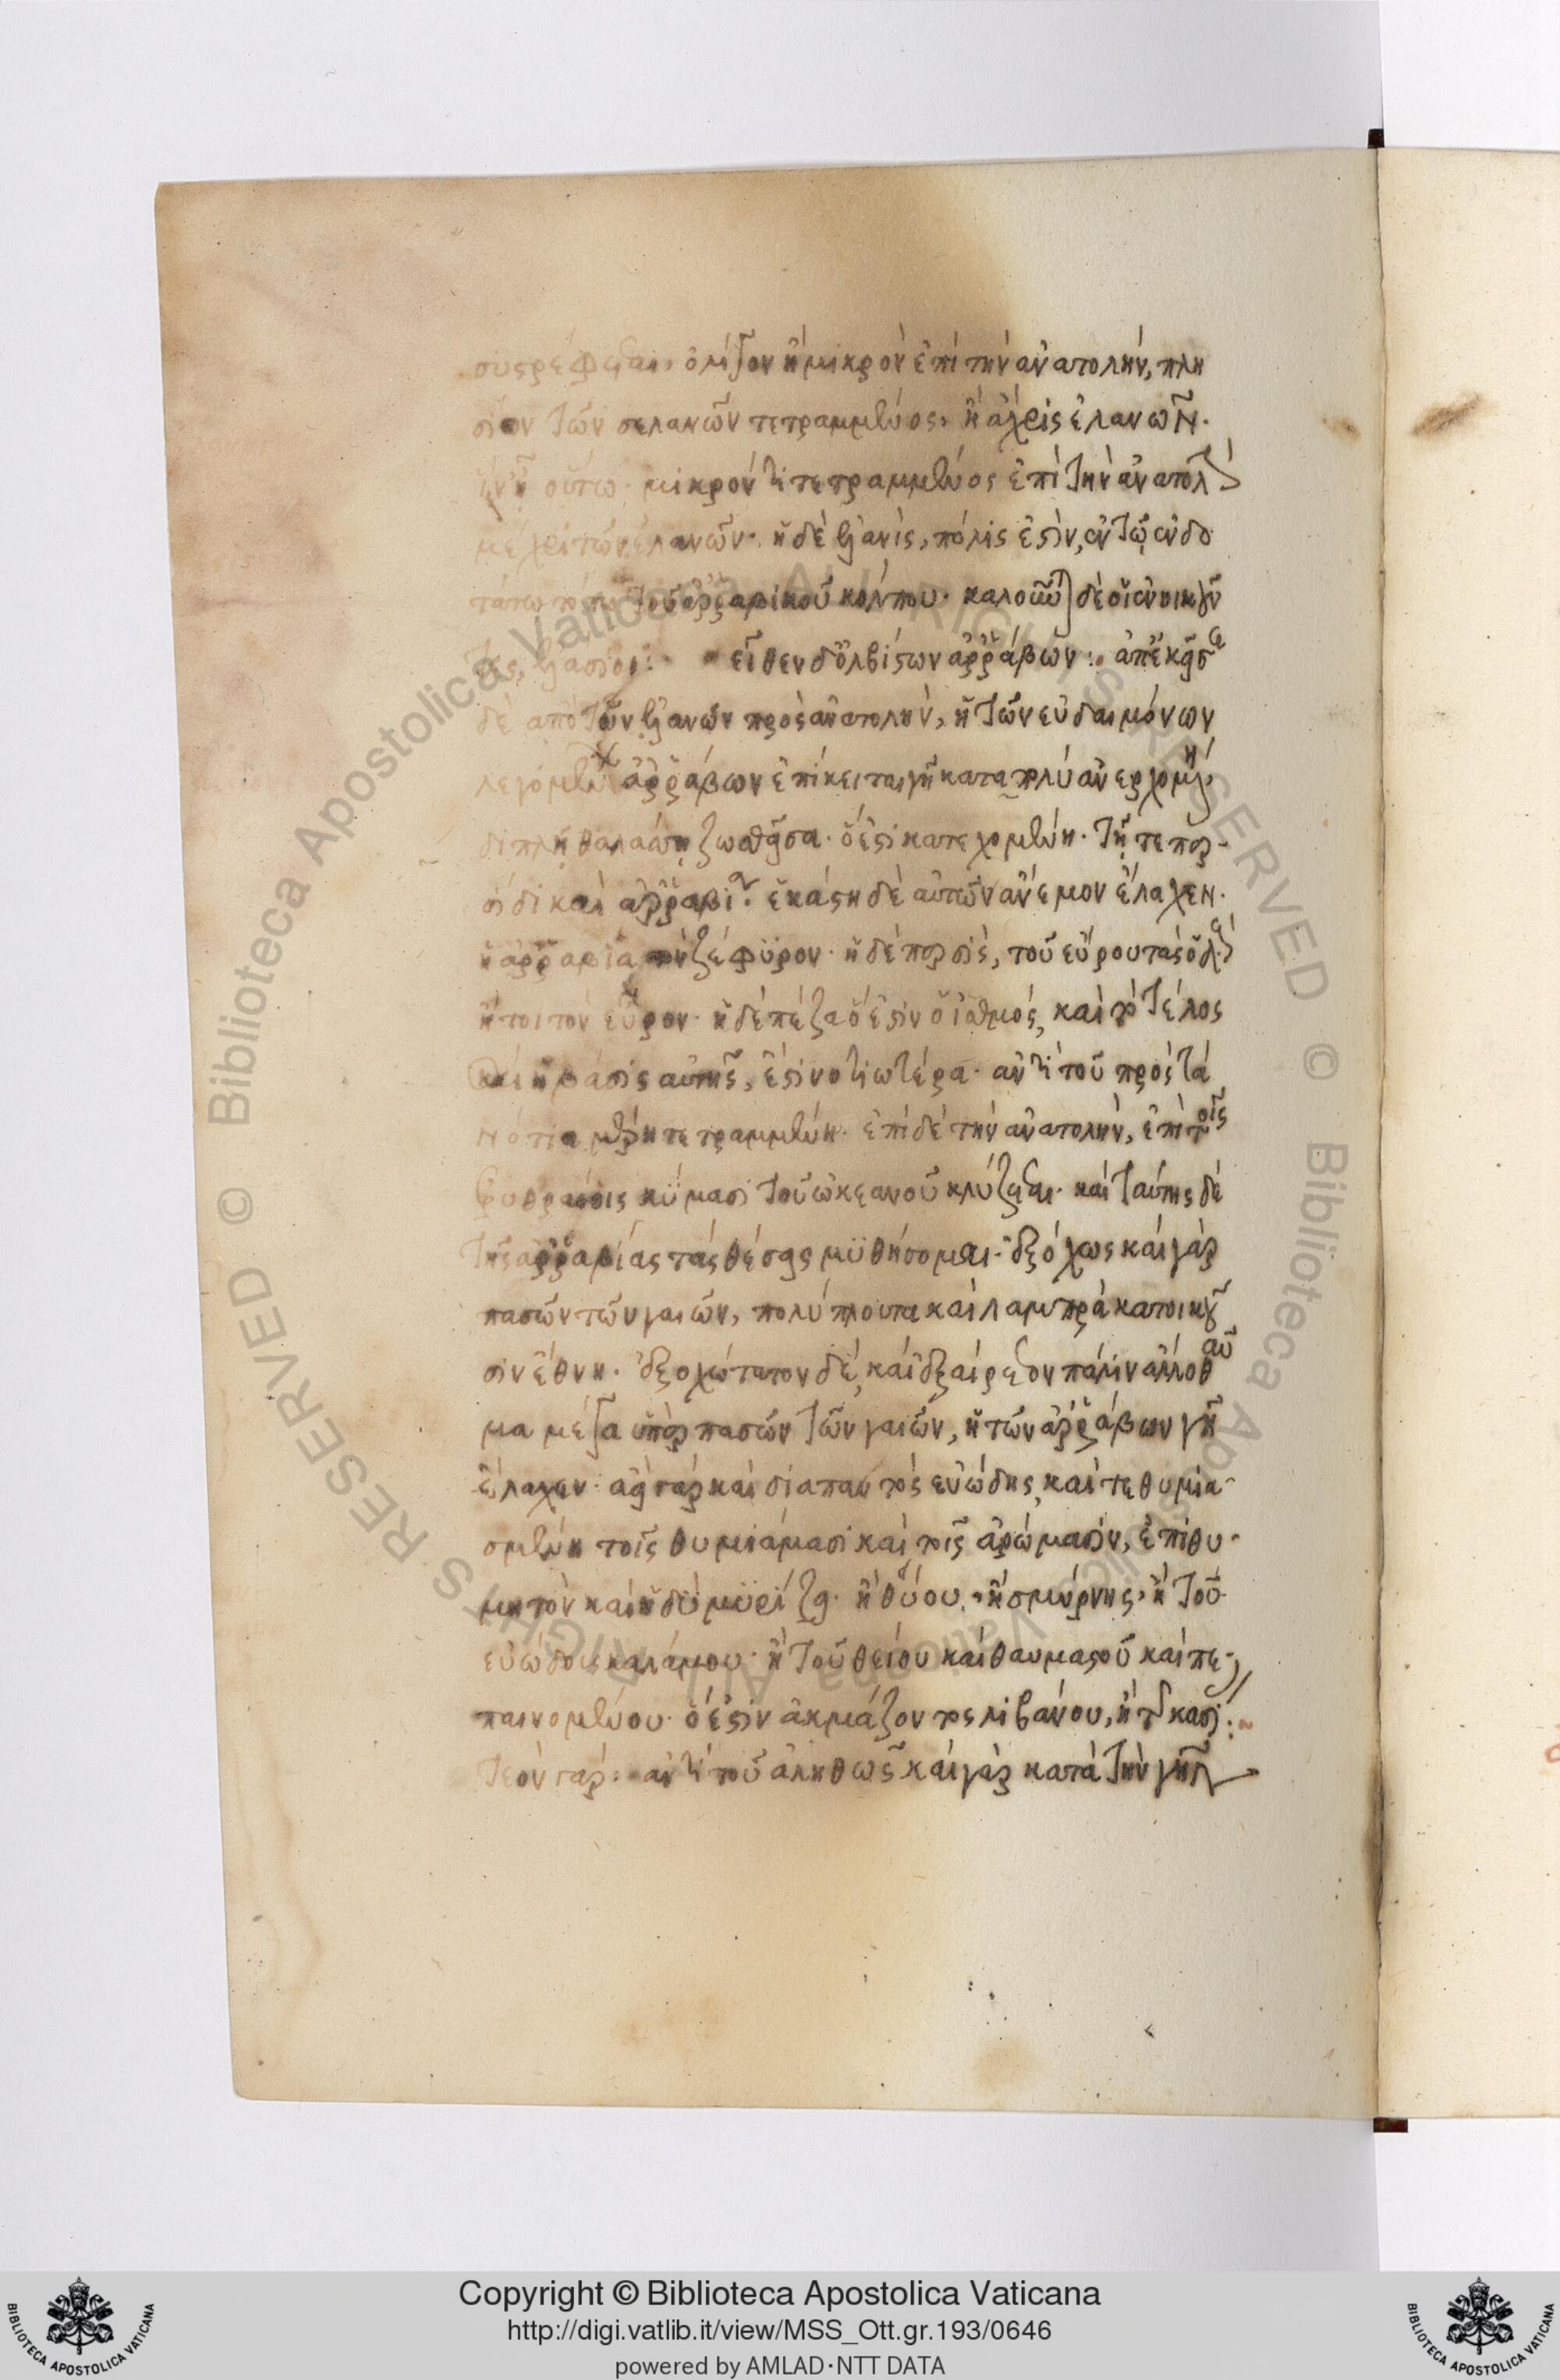 συστρέφεται, ὀλίγον ἢ μικρὸν ἐπὶ τὴν ἀνατολὴν, πλη
σίον τῶν σελανῶν τετραμμένος. ἢ ἄχρις ἐλανῶν.
οὕτω· μικρόν τι τετραμμένος ἐπὶ τὴν ἀνατολὴν
μέχρι τῶν ἐλανῶν. ἡ δὲ ἐλανὶς, πόλις ἐστὶν, ἐν τῷ ἐνδο
τάτω τόπω τοῦ ἀρραβικοῦ κόλπου. καλοῦνται δὲ οἱ ἐνοικοῦν
τες, ἔνθεν δ' ὀλβίστων ἀρράβων :. ἀπέκεισε
δὲ ἀπὸ τῶν ἐλανῶν πρὸς ἀνατολὴν, ἡ τῶν εὐδαιμόνων
λεγομένων ἀρράβων ἐπίκειται γῆ κατὰ πολὺ ἀνερχομένη,
διπλῆ θαλάσσῃ ζωσθεῖσα. ὅ ἐστι κατεχομένη. τῇ τε περ-
σίδι καὶ ἀρραβικῇ. ἑκάστη δὲ αὐτῶν ἄνεμον ἔλαχεν.
ἡ ἀρραβία τὸν ζέφυρον. ἡ δὲ περσὶς, τοῦ εὔρου τὰς ὁδοὺς
ἤτοι τὸν εὖρον. ἡ δὲ πέζα ὅ ἐστιν ὁ ἰσθμός, καὶ τὸ τέλος
καὶ ἡ βάσις αὐτῆς, ἐστὶ νοτιωτέρα. ἀντὶ τοῦ πρὸς τὰ
νότια μέρη τετραμμένη. ἐπὶ δὲ τὴν ἀνατολὴν, ἐπὶ τοῖς
ἐρυθραίοις κύμασι τοῦ ὠκεανοῦ κλύζεται. καὶ ταύτης δὲ
τῆς ἀρραβίας τὰς θέσεις μυθήσομαι. ἐξόχως καὶ γὰρ
πασῶν τῶν γαιῶν, πολύπλουτα καὶ λαμπρὰ κατοικοῦ
σιν ἔθνη. ἐξοχώτατον δὲ, καὶ ἐξαίρετον πάλιν ἄλλο θαῦ
μα μέγα ὑπὲρ πασῶν τῶν γαιῶν, ἡ τῶν ἀρράβων γῆ
ἔλαχεν. ἀεὶ γὰρ καὶ διαπαντὸς εὐώδης, καὶ τεθυμια-
σμένη τοῖς θυμιάμασι καὶ τοῖς ἀρώμασιν, ἐπιθυ-
μητὸν καὶ ἡδὺ μυρίζει. ἢ θύου, ἢ σμύρνης, ἢ τοῦ
εὐώδους καλάμου. ἢ τοῦ θείου καὶ θαυμαστοῦ καὶ πε-
παινομένου. ὅ ἐστιν ἀκμάζοντος λιβάνου, ἢ τῆς κασί :~
τεὸν γὰρ. ἀντὶ τοῦ ἀληθῶς καὶ γὰρ κατὰ τὴν γῆν
Copyright © Biblioteca Apostolica Vaticana
http://digi.vatlib.it/view/MSS_Ott.gr.193/0646
powered by AMLAD·NTT DATA